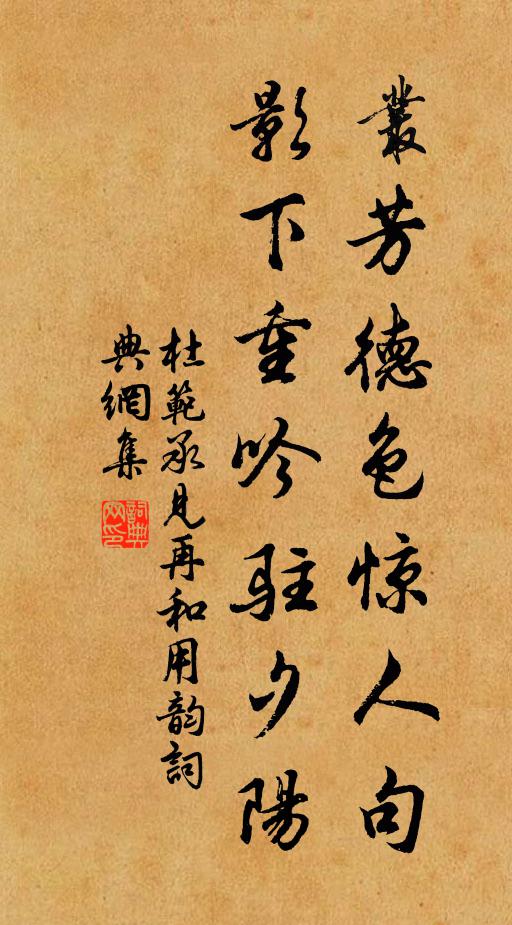 叢芳德色惊人句
影下重吟駐夕陽
杜範承見再和用韵詞
典網集
詞典网印